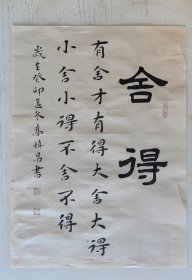 舍得
有舍才有得大舍大得
小舍小得不舍不得
歲在癸卯孟冬高昌書